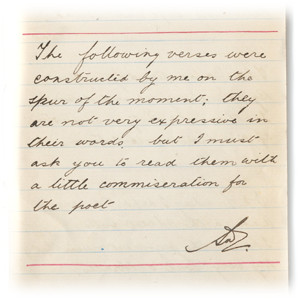 The following verses were
constructed by me on the
spur of the moment; they
are not very expressive in
their words but I must
ask you to read them with
a little commiseration for
the poet